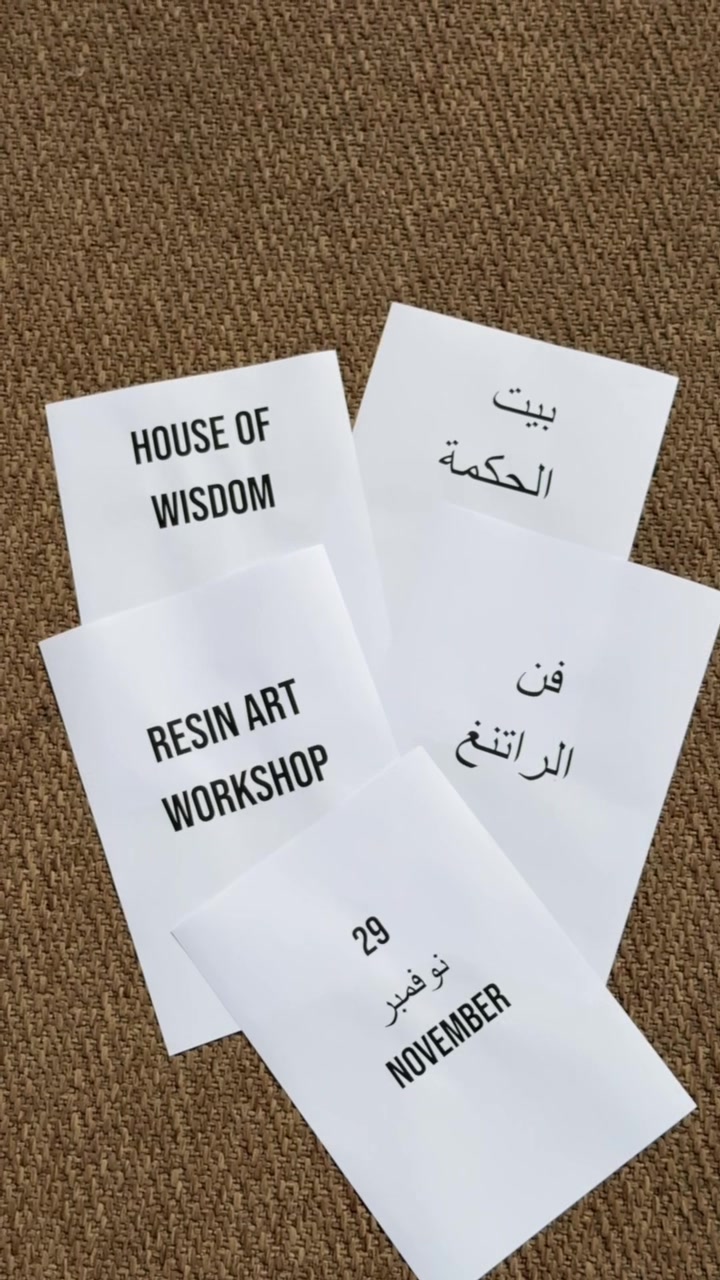 HOUSE OF
WISDOM
بيت
الحكمة
RESIN ART
WORKSHOP
فن
الراتنغ
29
نوفمبر
NOVEMBER